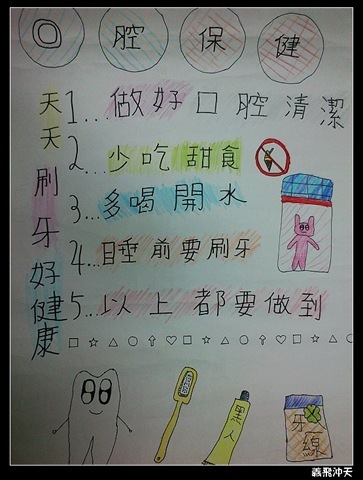 口腔保健
天天刷牙好健康
1...做好口腔清潔
2...少吃甜食
3...多喝開水
4...睡前要刷牙
5...以上都要做到
黑人
牙線
義飛沖天